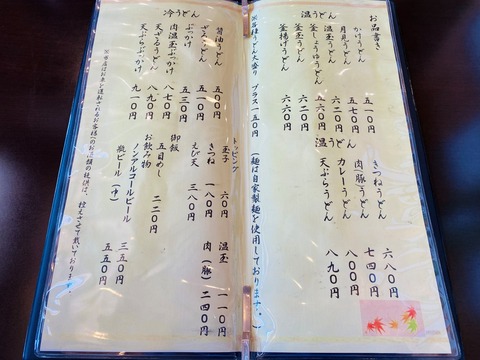 お品書き
温うどん
かけうどん 五一〇円
月見うどん 五七〇円
釜しょうゆうどん 五六〇円
釜玉うどん 六二〇円
釜揚げうどん 六六〇円
温うどん
きつねうどん 六八〇円
肉(豚)うどん 七四〇円
カレーうどん 八〇〇円
天ぷらうどん 八九〇円
※各種うどん大盛り プラス一五〇円 (麺は自家製麺を使用しております。)
冷うどん
醤油うどん 五〇〇円
ざるうどん 五一〇円
ぶっかけ 五三〇円
肉温玉ぶっかけ 八七〇円
天ざるうどん 八九〇円
天ぷらぶっかけ 九一〇円
トッピング
玉子 六〇円
温玉 一一〇円
きつね 一八〇円
肉(豚) 二四〇円
えび天 三八〇円
御飯
五目めし 二二〇円
お飲み物
ノンアルコールビール 三五〇円
瓶ビール(中) 五五〇円
※当店はお車を運転されるお客様へのお酒類の提供は、控えさせて戴いております。